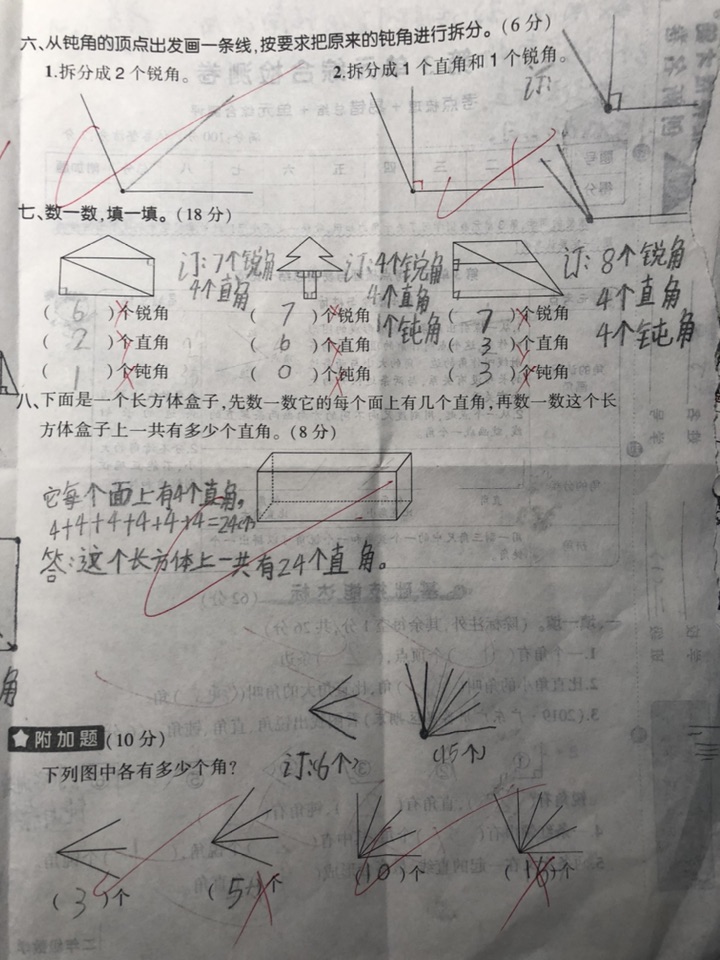 六、从钝角的顶点出发画一条线,按要求把原来的钝角进行拆分。(6分)
1.拆分成2个锐角。 2.拆分成1个直角和1个锐角。
订:
七、数一数,填一填。(18分)
订:7个锐角 订:4个锐角 订:8个锐角
4个直角 4个直角 4个直角
1个钝角 4个钝角
( 6 )个锐角 ( 7 )个锐角 ( 7 )个锐角
( 2 )个直角 ( 6 )个直角 ( 3 )个直角
( 1 )个钝角 ( 0 )个钝角 ( 3 )个钝角
八、下面是一个长方体盒子,先数一数它的每个面上有几个直角,再数一数这个长
方体盒子上一共有多少个直角。(8分)
它每个面上有4个直角。
4+4+4+4+4+4=24(个)
答:这个长方体上一共有24个直角。
附加题(10分)
下列图中各有多少个角?
订:6个 (15个)
( 3 )个 ( 5 )个 ( 10 )个 ( 16 )个